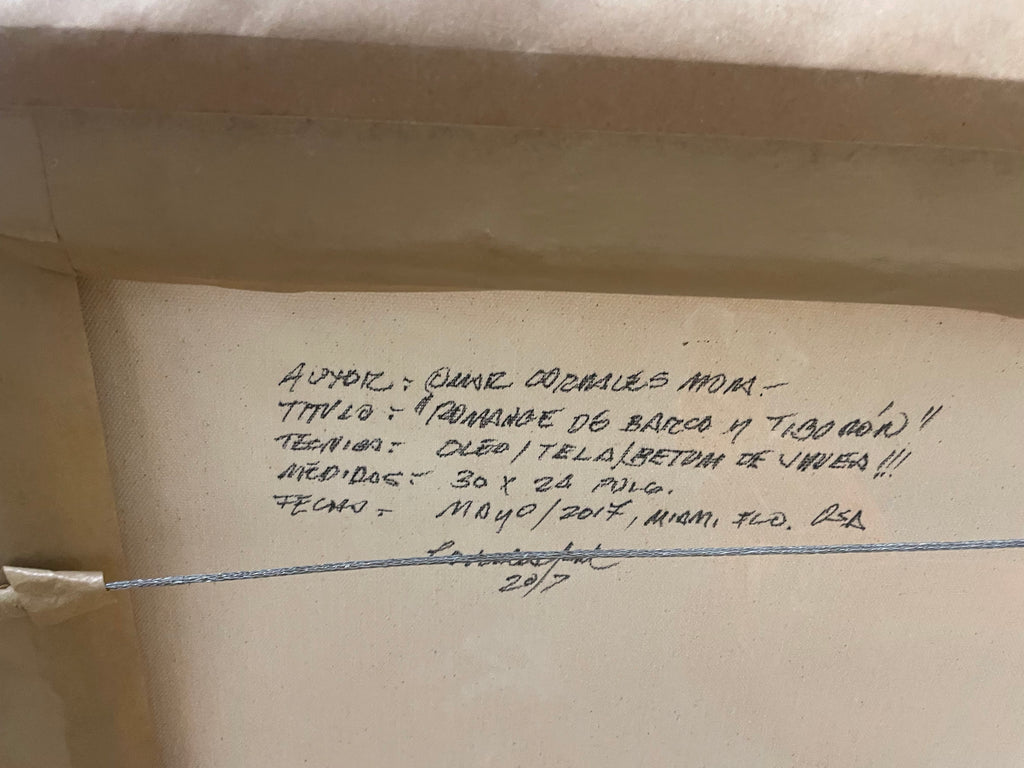 AUTOR: OMAR CORRALES MORA.-
TITULO: "ROMANCE DE BARCO Y TIBORÓN"
TECNICA: OLEO/TELA/BETUM DE JUDEA!!!
MEDIDAS: 30 X 24 PULG.
FECHA: MAYO/2017, MIAMI FLO. USA
2017